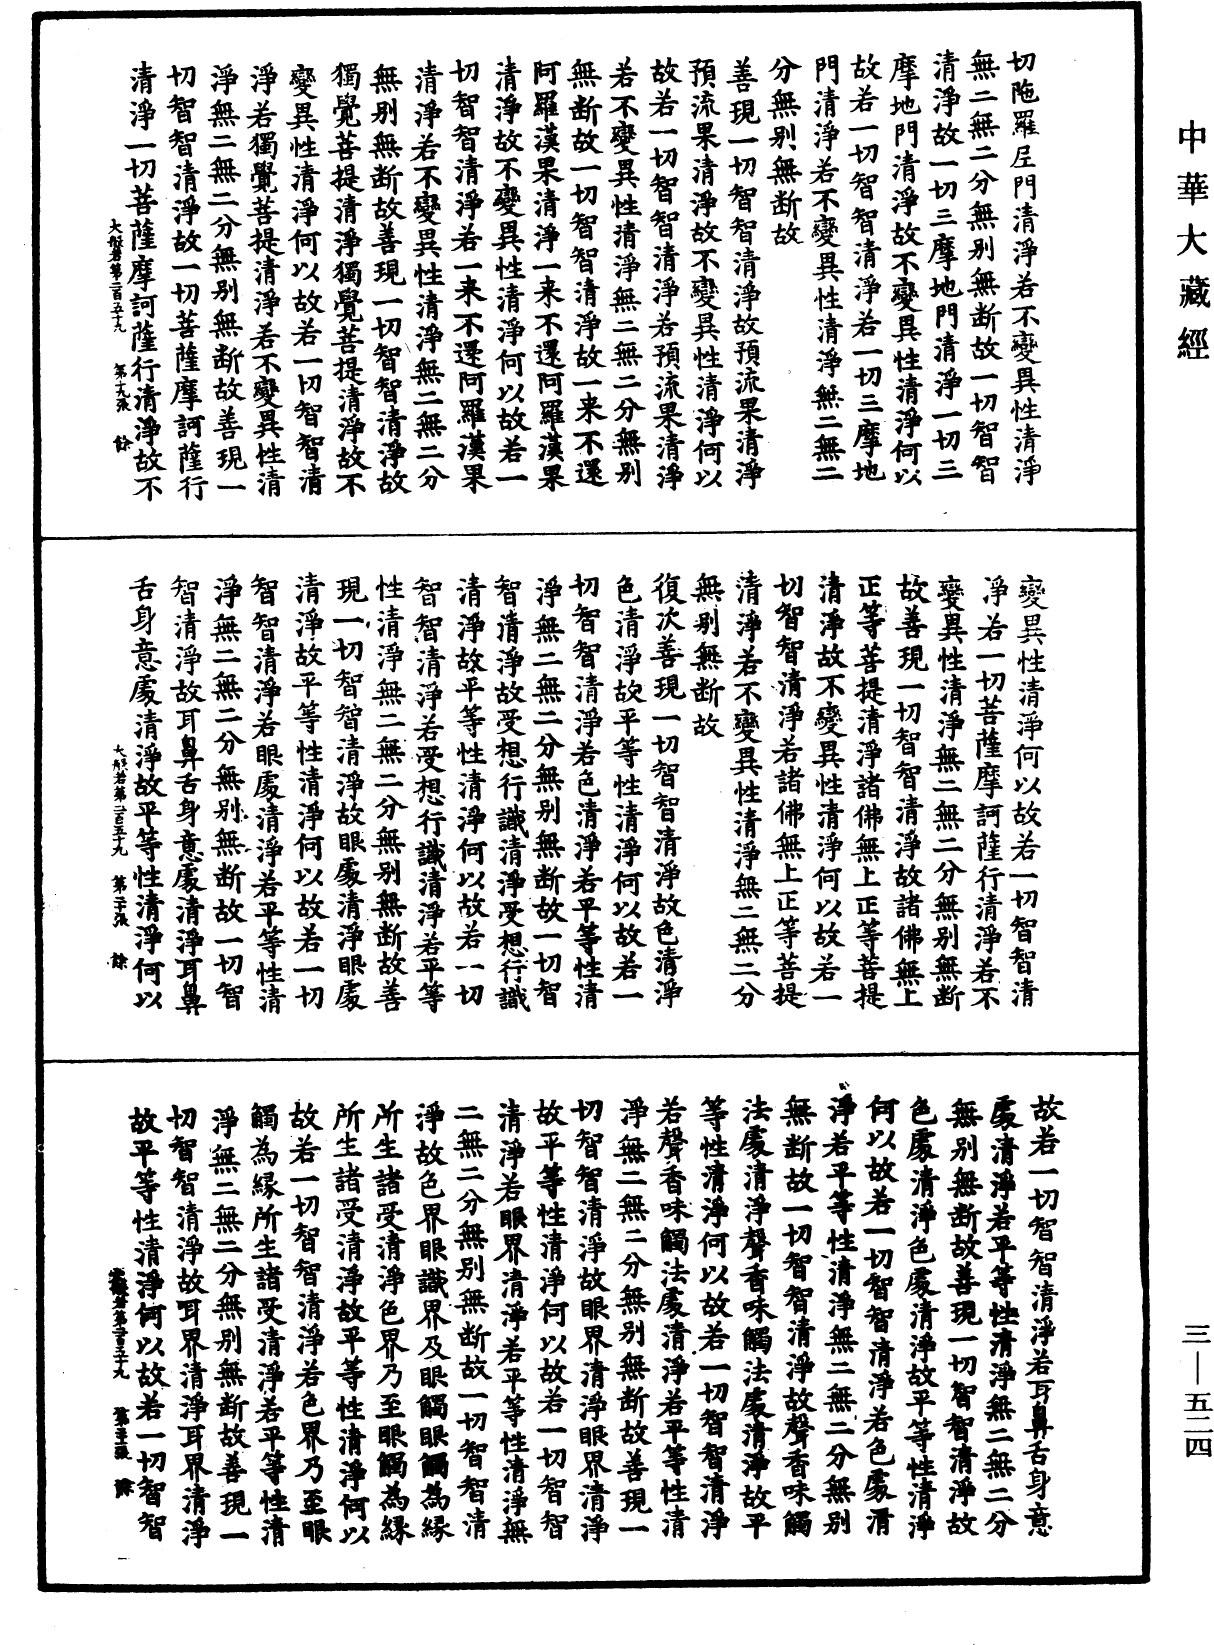 中華大藏經
切陁羅尼門清淨若不變異性清淨
無二無二分無別無斷故一切智智
清淨故一切三摩地門清淨一切三
摩地門清淨故不變異性清淨何以
故若一切智智清淨若一切三摩地
門清淨若不變異性清淨無二無二
分無別無斷故
善現一切智智清淨故預流果清淨
預流果清淨故不變異性清淨何以
故若一切智智清淨若預流果清淨
若不變異性清淨無二無二分無別
無斷故一切智智清淨故一来不還
阿羅漢果清淨一来不還阿羅漢果
清淨故不變異性清淨何以故若一
切智智清淨若一来不還阿羅漢果
清淨若不變異性清淨無二無二分
無別無斷故善現一切智智清淨故
獨覺菩提清淨獨覺菩提清淨故不
變異性清淨何以故若一切智智清
淨若獨覺菩提清淨若不變異性清
淨無二無二分無別無斷故善現一
切智智清淨故一切菩薩摩訶薩行
清淨一切菩薩摩訶薩行清淨故不
大般若第二百五十九 第十九張 餘
變異性清淨何以故若一切智智清
淨若一切菩薩摩訶薩行清淨若不
變異性清淨無二無二分無別無斷
故善現一切智智清淨故諸佛無上
正等菩提清淨諸佛無上正等菩提
清淨故不變異性清淨何以故若一
切智智清淨若諸佛無上正等菩提
清淨若不變異性清淨無二無二分
無別無斷故
復次善現一切智智清淨故色清淨
色清淨故平等性清淨何以故若一
切智智清淨若色清淨若平等性清
淨無二無二分無別無斷故一切智
智清淨故受想行識清淨受想行識
清淨故平等性清淨何以故若一切
智智清淨若受想行識清淨若平等
性清淨無二無二分無別無斷故善
現一切智智清淨故眼處清淨眼處
清淨故平等性清淨何以故若一切
智智清淨若眼處清淨若平等性清
淨無二無二分無別無斷故一切智
智清淨故耳鼻舌身意處清淨耳鼻
舌身意處清淨故平等性清淨何以
大般若第二百五十九 第二十張 餘
故若一切智智清淨若耳鼻舌身意
處清淨若平等性清淨無二無二分
無別無斷故善現一切智智清淨故
色處清淨色處清淨故平等性清淨
何以故若一切智智清淨若色處清
淨若平等性清淨無二無二分無別
無斷故一切智智清淨故聲香味觸
法處清淨聲香味觸法處清淨故平
等性清淨何以故若一切智智清淨
若聲香味觸法處清淨若平等性清
淨無二無二分無別無斷故善現一
切智智清淨故眼界清淨眼界清淨
故平等性清淨何以故若一切智智
清淨若眼界清淨若平等性清淨無
二無二分無別無斷故一切智智清
淨故色界眼識界及眼觸眼觸為緣
所生諸受清淨色界乃至眼觸為緣
所生諸受清淨故平等性清淨何以
故若一切智智清淨若色界乃至眼
觸為緣所生諸受清淨若平等性清
淨無二無二分無別無斷故善現一
切智智清淨故耳界清淨耳界清淨
故平等性清淨何以故若一切智智
大般若第二百五十九 第二十一張 餘
三—五二四